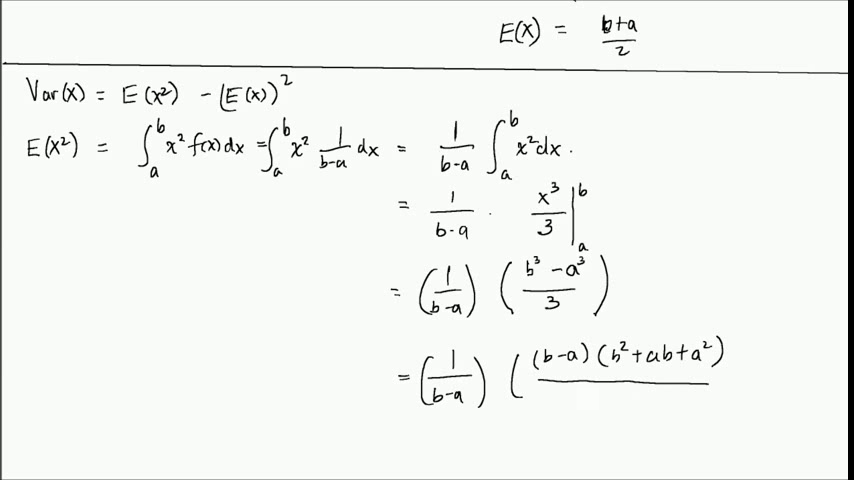 E(X) = b+a/2
Var(X) = E(X²) - (E(X))²
E(X²) = ∫ₐᵇ x² f(x) dx = ∫ₐᵇ x² 1/b-a dx = 1/b-a ∫ₐᵇ x² dx.
= 1/b-a · x³/3 |ₐᵇ
= (1/b-a) (b³ - a³/3)
= (1/b-a) ((b-a) (b² + ab + a²)